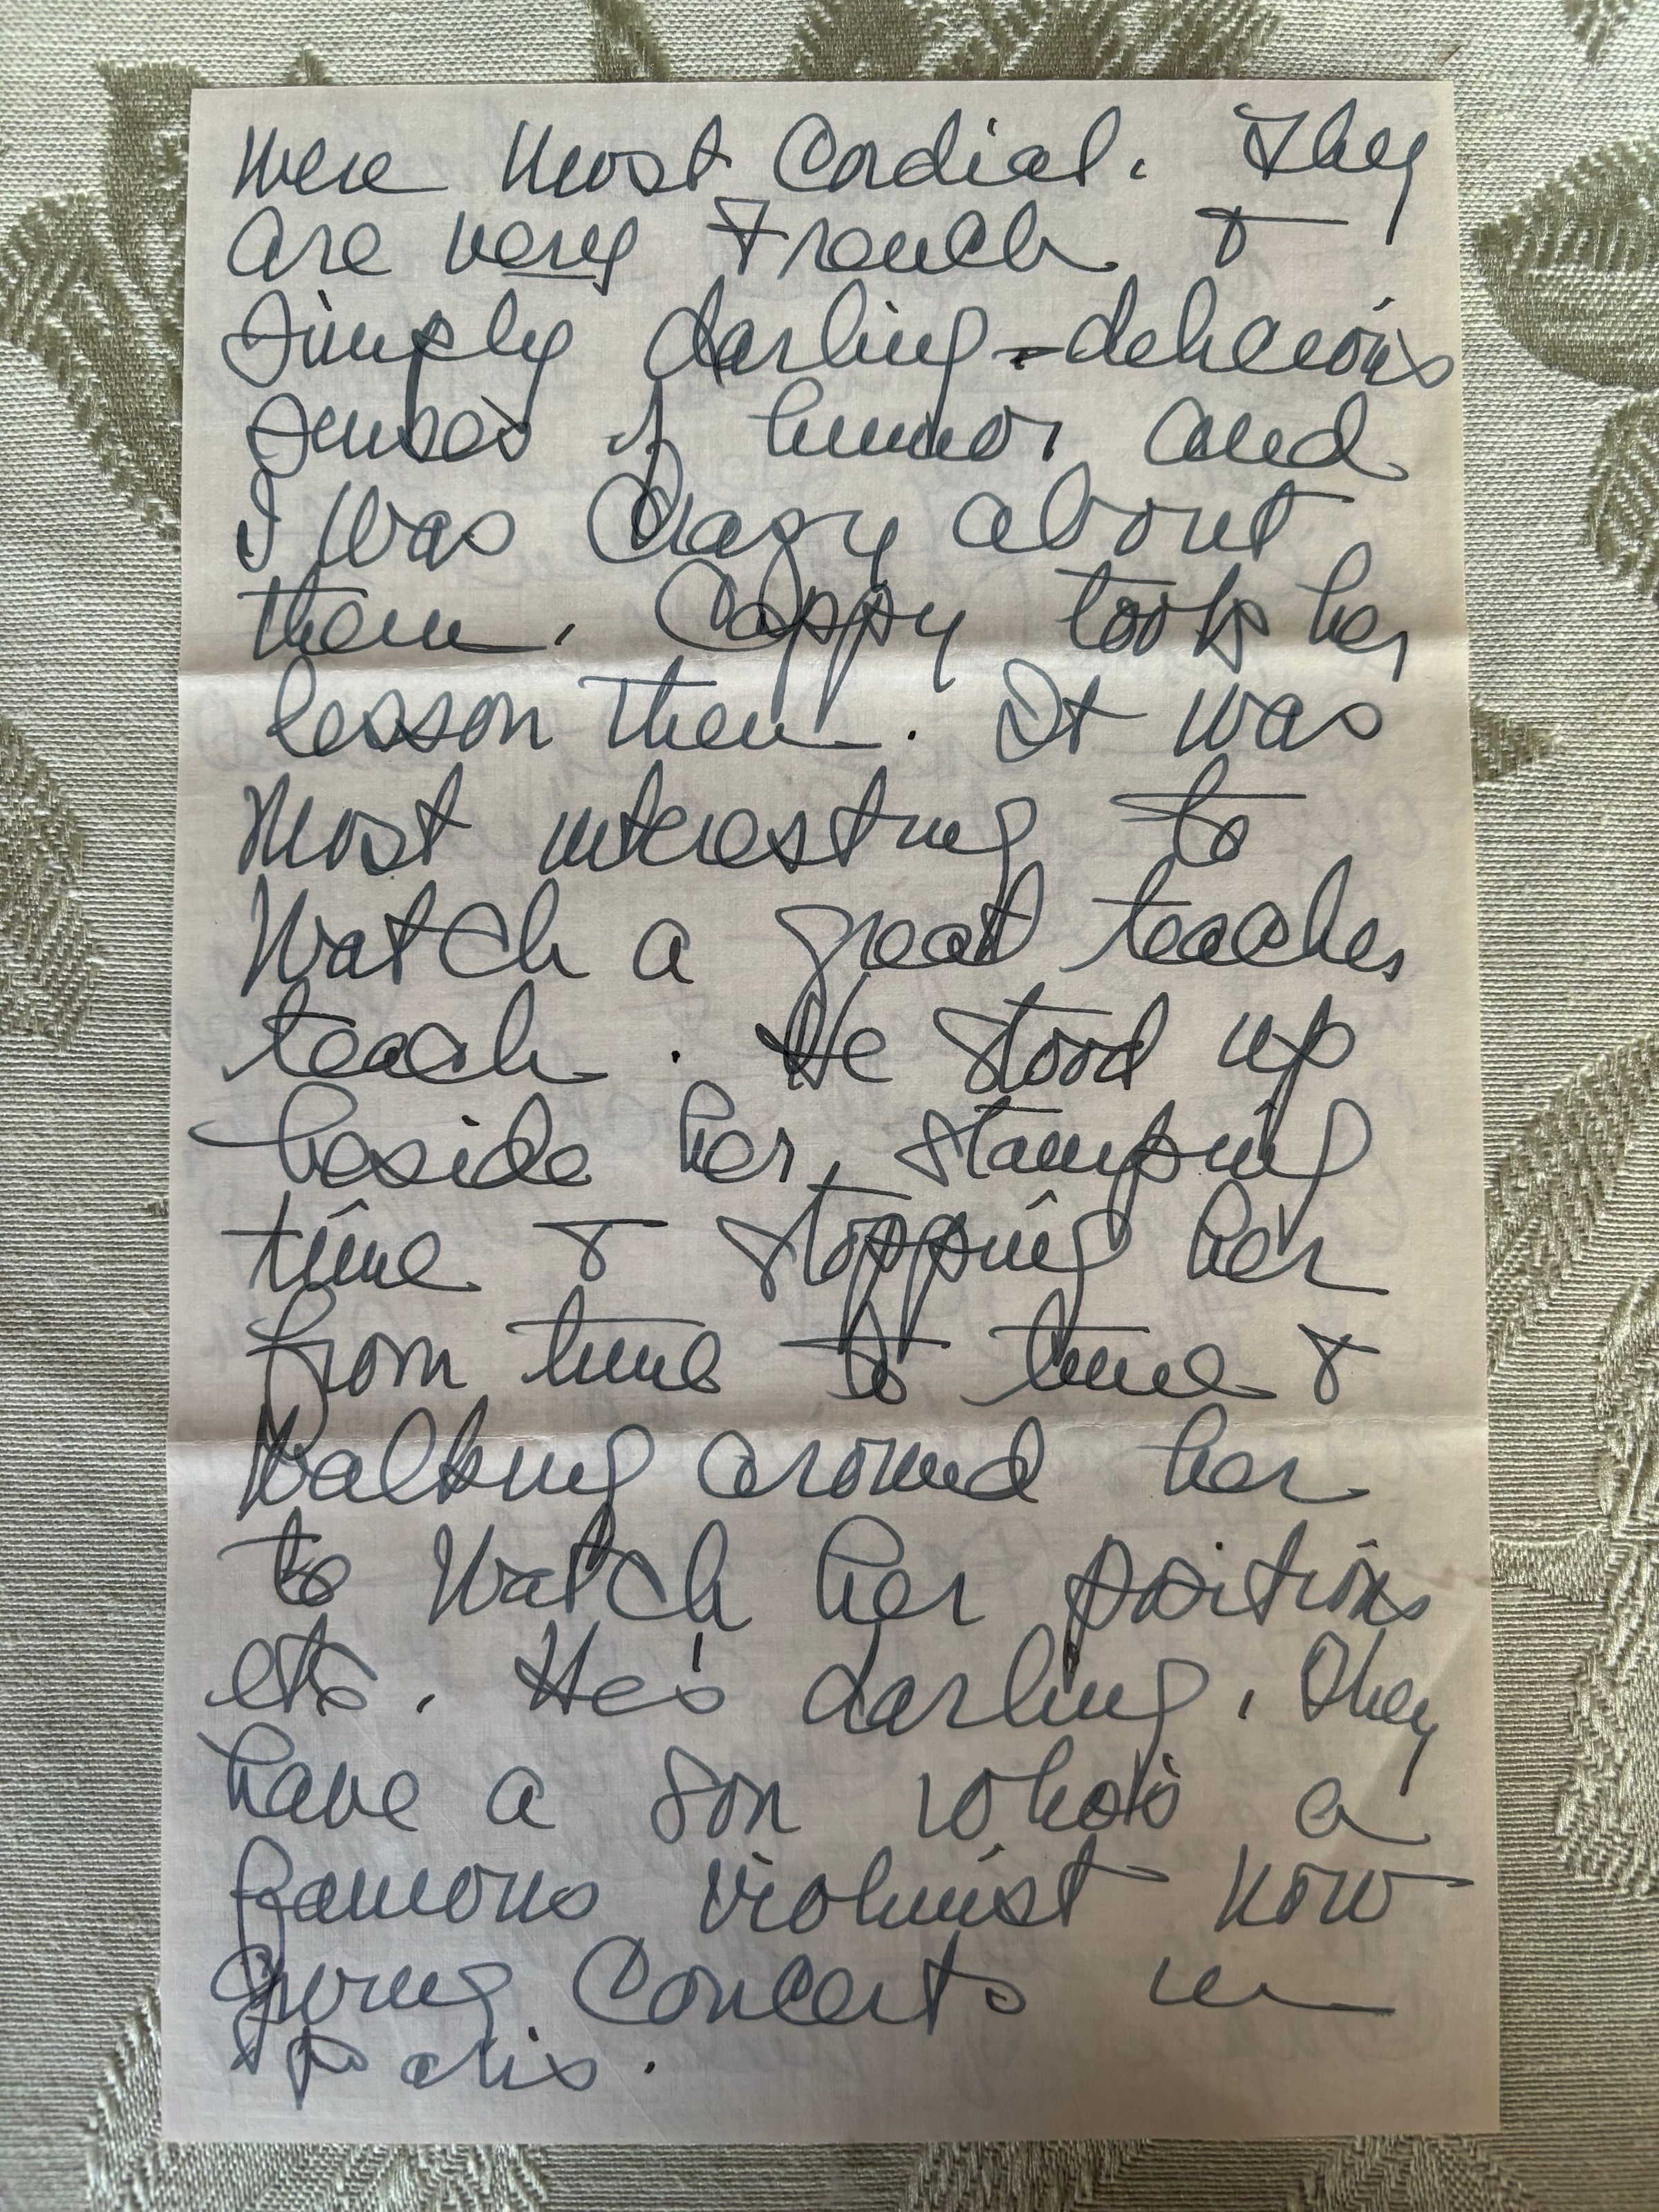 were most cordial. They
are very French &
simply darling - delicious
senses of humor and
I was crazy about
them. Cappy took her
lesson then. It was
most interesting to
watch a great teacher
teach. He stood up
beside her, stamping
time & stopping her
from time to time &
walking around her
to watch her positions
etc. He's darling. They
have a son who's a
famous violinist now
giving concerts in
Paris.